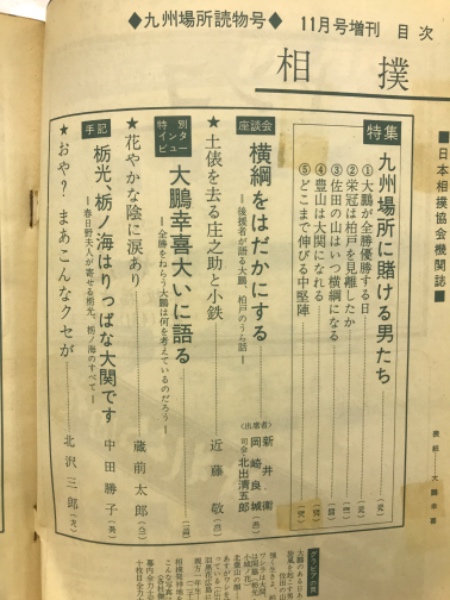 ◆九州場所読物号◆ 11月号増刊 目次
相撲
■日本相撲協会機関誌■
特集 九州場所に賭ける男たち
①大鵬が全勝優勝する日
②栄冠は柏戸を見離したか
③佐田の山はいつ横綱になる
④豊山は大関になれる
⑤どこまで伸びる中堅陣
座談会 横綱をはだかにする
―後援者が語る大鵬、柏戸のうら話―
〈出席者〉
新井衛
岡崎良城
司会・北出清五郎
★土俵を去る庄之助と小鉄 近藤敬
特別インタビュー 大鵬幸喜大いに語る
―全勝をねらう大鵬は何を考えているのだろう―
★花やかな陰に涙あり 蔵前太郎
手記 栃光、栃ノ海はりっぱな大関です 中田勝子
―春日野夫人が寄せる栃光、栃ノ海のすべて―
★おや?まあこんなクセが 北沢三郎
表紙 大鵬幸喜